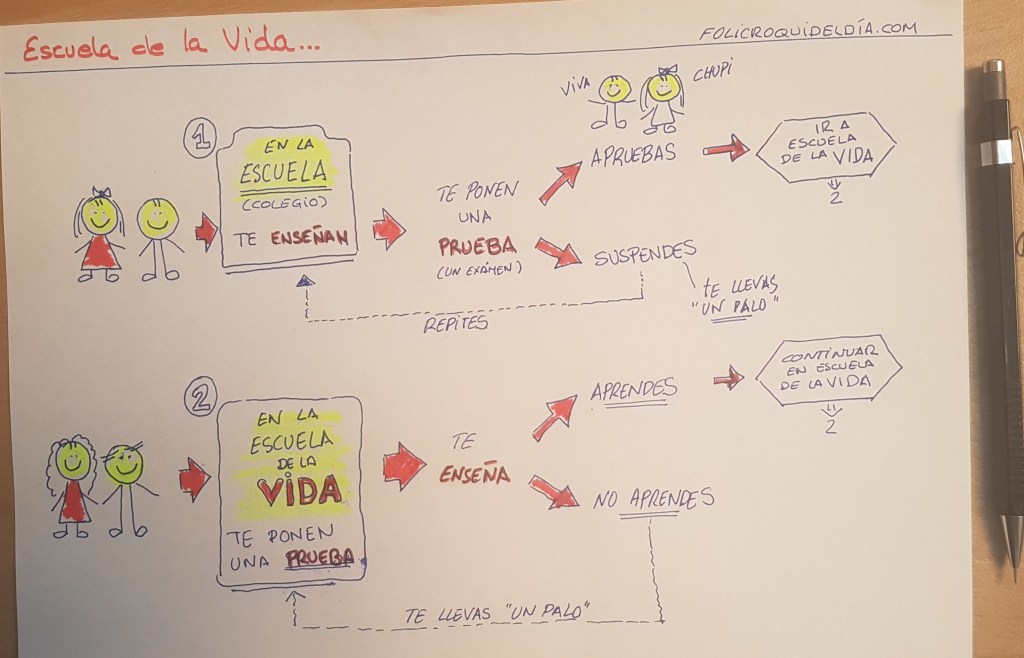 Escuela de la Vida...
FOLICROQUIDELDÍA.COM
VIVA
CHUPI
1
EN LA
ESCUELA
(COLEGIO)
TE ENSEÑAN
TE PONEN
UNA
PRUEBA
(UN EXÁMEN)
APRUEBAS
IR A
ESCUELA
DE LA VIDA
2
SUSPENDES
TE LLEVAS
"UN PALO"
REPITES
2
EN LA
ESCUELA
DE LA
VIDA
TE PONEN
UNA PRUEBA
TE
ENSEÑA
APRENDES
CONTINUAR
EN ESCUELA
DE LA VIDA
2
NO APRENDES
TE LLEVAS "UN PALO"